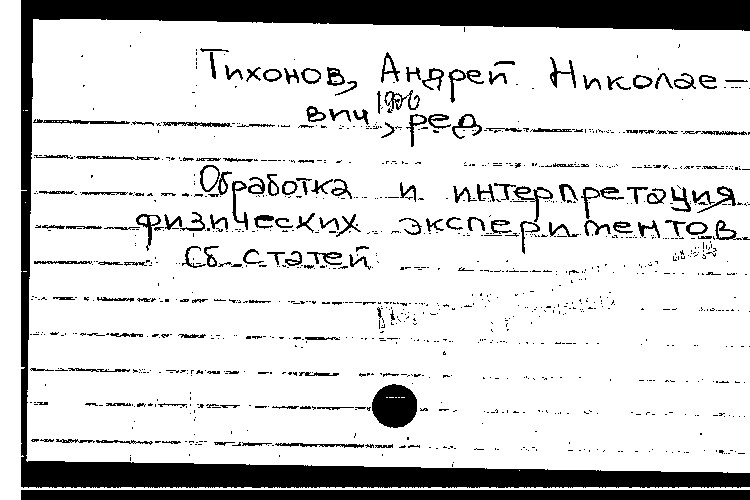 Тихонов, Андрей Николае-
вич, 1906
ред
Обработка и интерпретация
физических экспериментов
Сб. статей